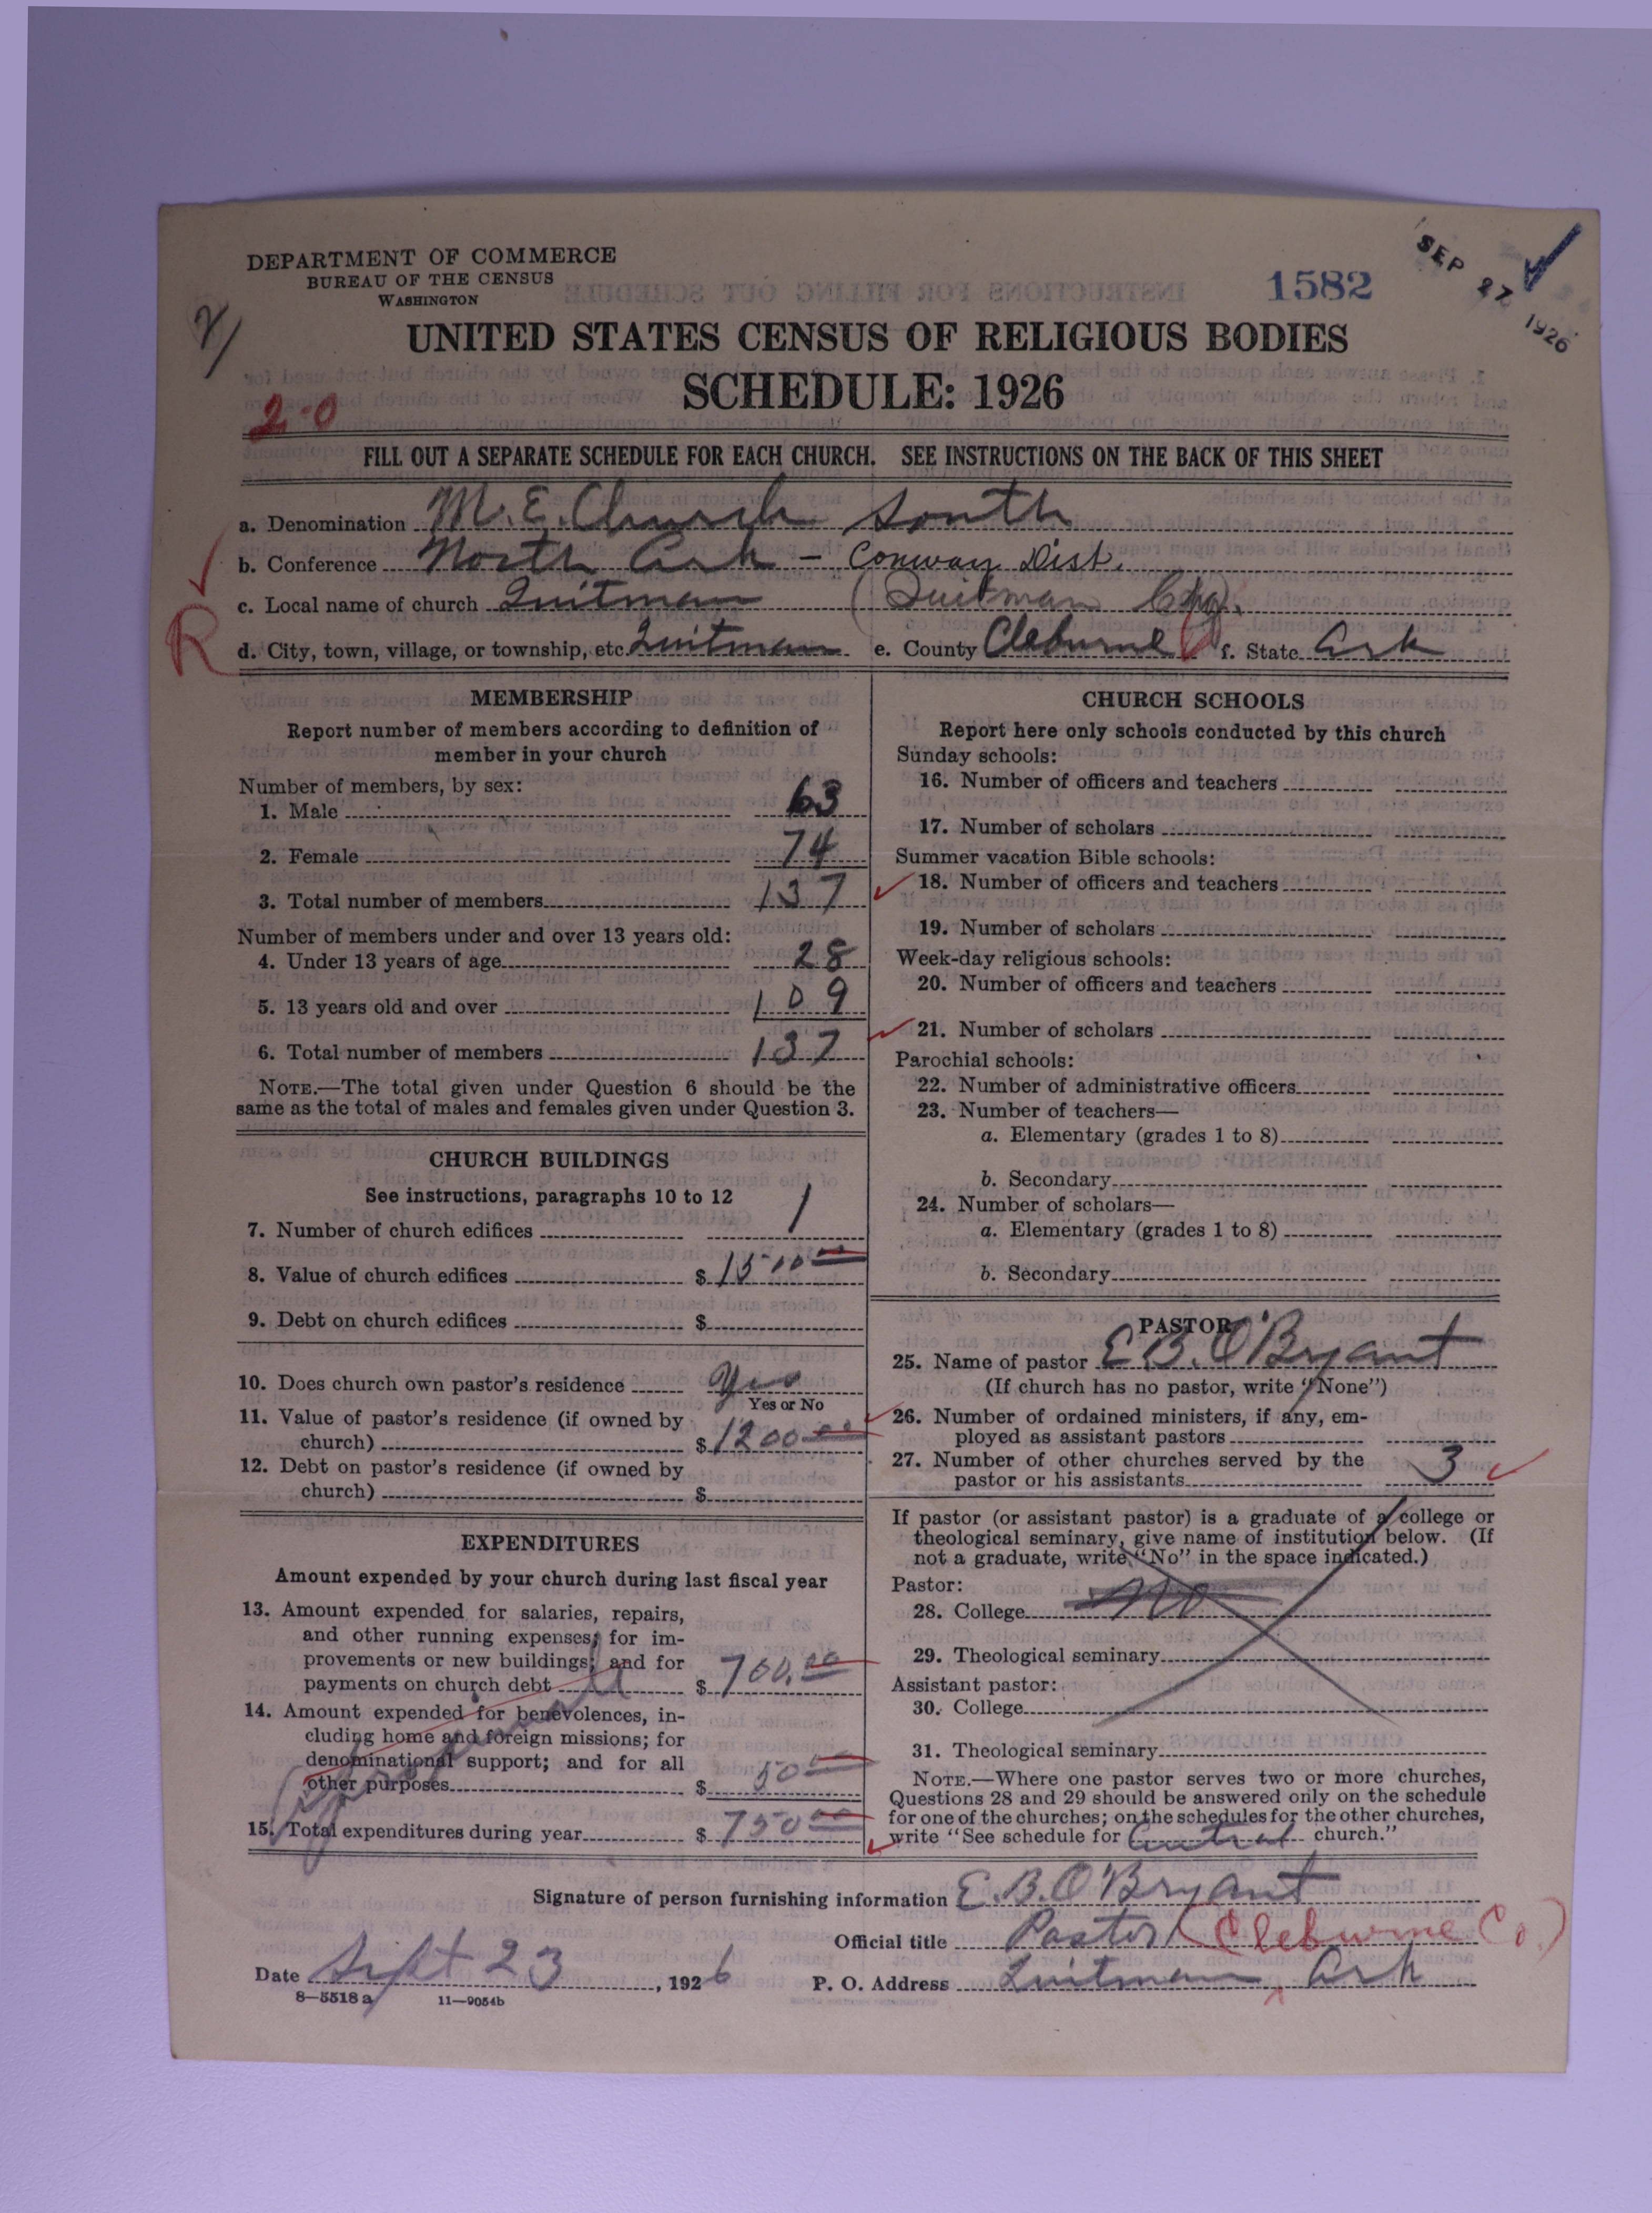 DEPARTMENT OF COMMERCE
BUREAU OF THE CENSUS
WASHINGTON
1582
SEP 27 1926
UNITED STATES CENSUS OF RELIGIOUS BODIES
SCHEDULE: 1926
2-0
FILL OUT A SEPARATE SCHEDULE FOR EACH CHURCH. SEE INSTRUCTIONS ON THE BACK OF THIS SHEET
a. Denomination M.E. Church South
b. Conference North Ark - Conway Dist.
c. Local name of church Quitman (Quitman Chg.)
R
d. City, town, village, or township, etc. Quitman e. County Cleburne f. State Ark
MEMBERSHIP
Report number of members according to definition of
member in your church
Number of members, by sex:
1. Male 63
2. Female 74
3. Total number of members 137
Number of members under and over 13 years old:
4. Under 13 years of age 28
5. 13 years old and over 109
6. Total number of members 137
NOTE.—The total given under Question 6 should be the
same as the total of males and females given under Question 3.
CHURCH BUILDINGS
See instructions, paragraphs 10 to 12
7. Number of church edifices 1
8. Value of church edifices $ 1500.00
9. Debt on church edifices $
10. Does church own pastor's residence Yes
Yes or No
11. Value of pastor's residence (if owned by
church) $ 1200.00
12. Debt on pastor's residence (if owned by
church) $
EXPENDITURES
Amount expended by your church during last fiscal year
13. Amount expended for salaries, repairs,
and other running expenses; for im-
provements or new buildings; and for
payments on church debt $ 700.00
14. Amount expended for benevolences, in-
cluding home and foreign missions; for
denominational support; and for all
other purposes $ 50.00
15. Total expenditures during year $ 750.00
CHURCH SCHOOLS
Report here only schools conducted by this church
Sunday schools:
16. Number of officers and teachers
17. Number of scholars
Summer vacation Bible schools:
18. Number of officers and teachers
19. Number of scholars
Week-day religious schools:
20. Number of officers and teachers
21. Number of scholars
Parochial schools:
22. Number of administrative officers
23. Number of teachers—
a. Elementary (grades 1 to 8)
b. Secondary
24. Number of scholars—
a. Elementary (grades 1 to 8)
b. Secondary
PASTOR
25. Name of pastor E B. O'Bryant
(If church has no pastor, write "None")
26. Number of ordained ministers, if any, em-
ployed as assistant pastors
27. Number of other churches served by the
pastor or his assistants 3
If pastor (or assistant pastor) is a graduate of a college or
theological seminary, give name of institution below. (If
not a graduate, write "No" in the space indicated.)
Pastor:
28. College No
29. Theological seminary
Assistant pastor:
30. College
31. Theological seminary
NOTE.—Where one pastor serves two or more churches,
Questions 28 and 29 should be answered only on the schedule
for one of the churches; on the schedules for the other churches,
write "See schedule for Central church."
Signature of person furnishing information E. B. O'Bryant
Official title Pastor (Cleburne Co.)
Date Sept 23, 1926 P. O. Address Quitman Ark
8—5518 a 11—9054b